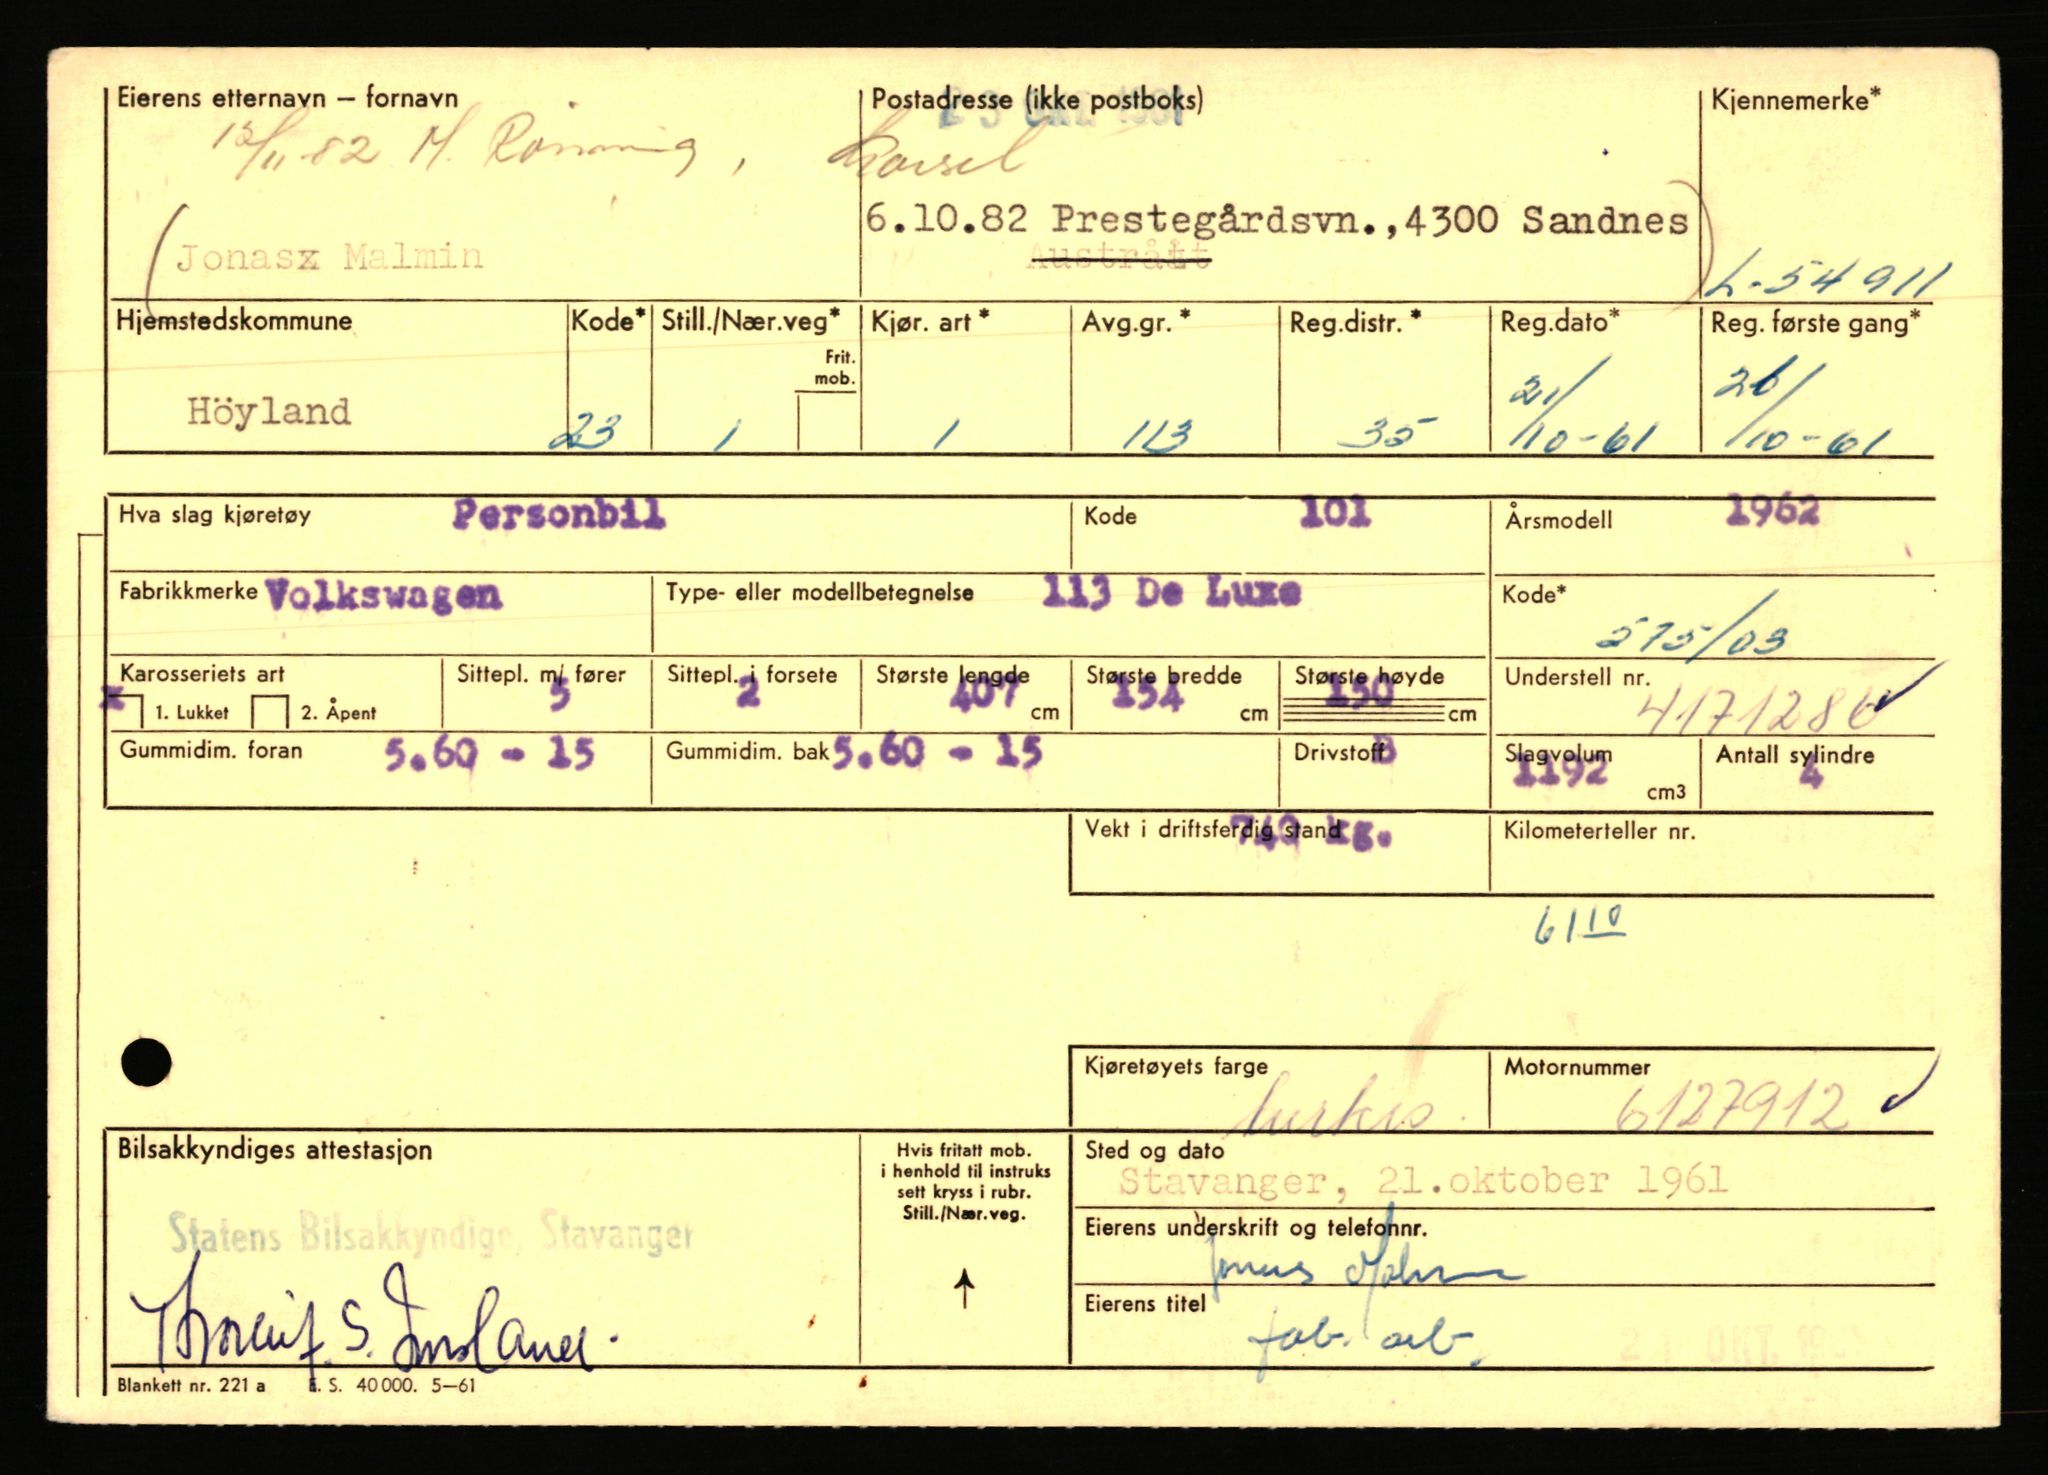 Eierens etternavn – fornavn
Postadresse (ikke postboks)
Kjennemerke*
12/11-82 M. Rönning,
6.10.82 Prestegårdsvn.,4300 Sandnes
(Jonasx Malmin
Austrått
)
L-54911
Hjemstedskommune Kode* Still./Nær.veg* Kjør. art* Avg.gr.* Reg.distr.* Reg.dato* Reg. første gang*
Frit.
mob.
Höyland 23 1 1 113 35 21/10-61 26/10-61
Hva slag kjøretøy Personbil Kode 101 Årsmodell 1962
Fabrikkmerke Volkswagen Type- eller modellbetegnelse 113 De Luxe Kode*
575/03
Karosseriets art Sittepl. m/ fører Sittepl. i forsete Største lengde Største bredde Største høyde Understell nr.
x 1. Lukket 2. Åpent 5 2 407 cm 154 cm 150 cm 4171286
Gummidim. foran 5.60 - 15 Gummidim. bak 5.60 - 15 Drivstoff B Slagvolum Antall sylindre
1192 cm3 4
Vekt i driftsferdig stand 740 kg. Kilometerteller nr.
61 10
Kjøretøyets farge Motornummer
turkis. 6127912
Bilsakkyndiges attestasjon
Hvis fritatt mob.
i henhold til instruks
sett kryss i rubr.
Still./Nær.veg.
Sted og dato
Stavanger, 21.oktober 1961
Statens Bilsakkyndige, Stavanger
Eierens underskrift og telefonnr.
Jonas Malmin
Eierens titel
fab. arb.
21 OKT. 19
Blankett nr. 221 a E. S. 40 000. 5–61